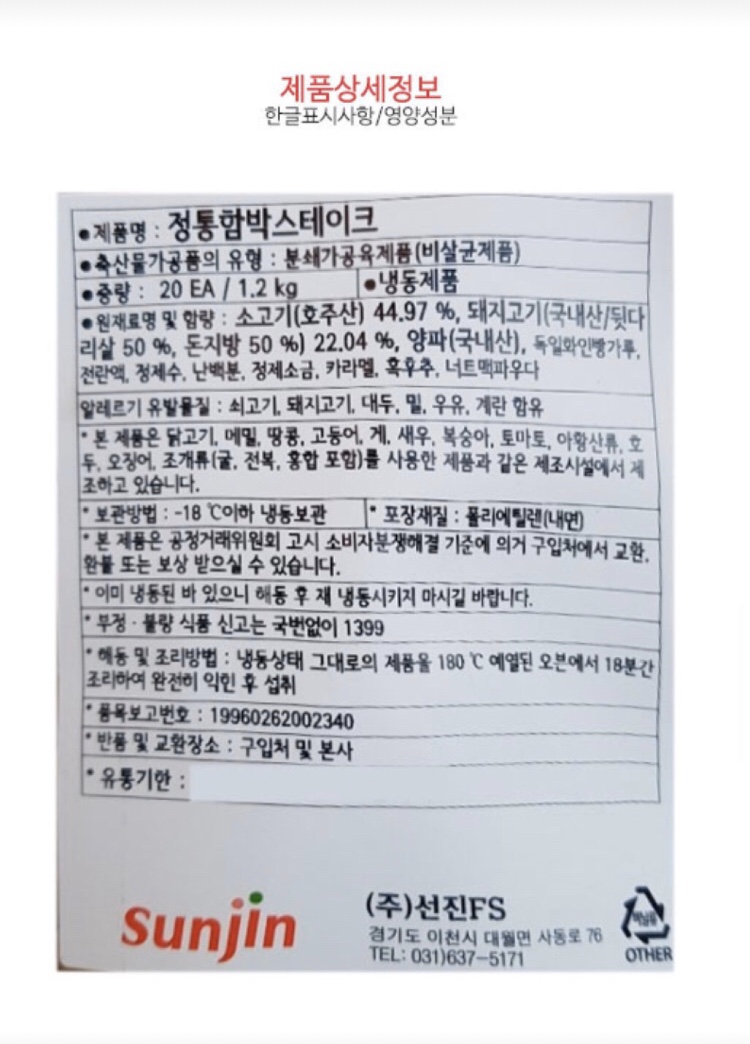 제품상세정보
한글표시사항/영양성분
●제품명 : 정통함박스테이크
●축산물가공품의 유형 : 분쇄가공육제품(비살균제품)
●중량 : 20 EA / 1.2 kg ●냉동제품
●원재료명 및 함량 : 소고기(호주산) 44.97 %, 돼지고기(국내산/뒷다
리살 50 %, 돈지방 50 %) 22.04 %, 양파(국내산), 독일화인빵가루,
전란액, 정제수, 난백분, 정제소금, 카라멜, 흑후추, 너트맥파우다
알레르기 유발물질 : 쇠고기, 돼지고기, 대두, 밀, 우유, 계란 함유
* 본 제품은 닭고기, 메밀, 땅콩, 고등어, 게, 새우, 복숭아, 토마토, 아황산류, 호
두, 오징어, 조개류(굴, 전복, 홍합 포함)를 사용한 제품과 같은 제조시설에서 제
조하고 있습니다.
* 보관방법 : -18 ℃이하 냉동보관 * 포장재질 : 폴리에틸렌(내면)
* 본 제품은 공정거래위원회 고시 소비자분쟁해결 기준에 의거 구입처에서 교환,
환불 또는 보상 받으실 수 있습니다.
* 이미 냉동된 바 있으니 해동 후 재 냉동시키지 마시길 바랍니다.
* 부정 · 불량 식품 신고는 국번없이 1399
* 해동 및 조리방법 : 냉동상태 그대로의 제품을 180 ℃ 예열된 오븐에서 18분간
조리하여 완전히 익힌 후 섭취
* 품목보고번호 : 19960262002340
* 반품 및 교환장소 : 구입처 및 본사
* 유통기한 :
Sunjin
(주)선진FS
경기도 이천시 대월면 사동로 76
TEL: 031)637-5171
비닐류
OTHER